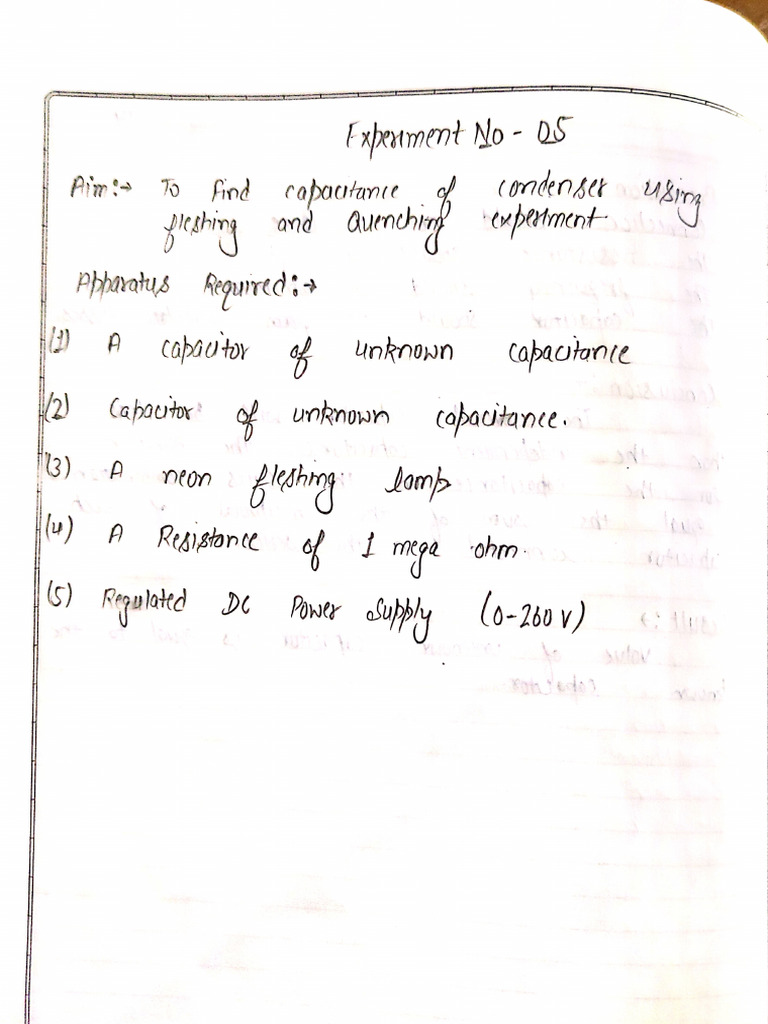 Experiment No - 05
Aim:→ To find capacitance of condenser using
fleshing and Quenching experiment
Apparatus Required:→
(1) A capacitor of unknown capacitance
(2) Capacitor of unknown capacitance.
(3) A neon fleshing lamp
(4) A Resistance of 1 mega ohm.
(5) Regulated DC Power Supply (0-260 V)